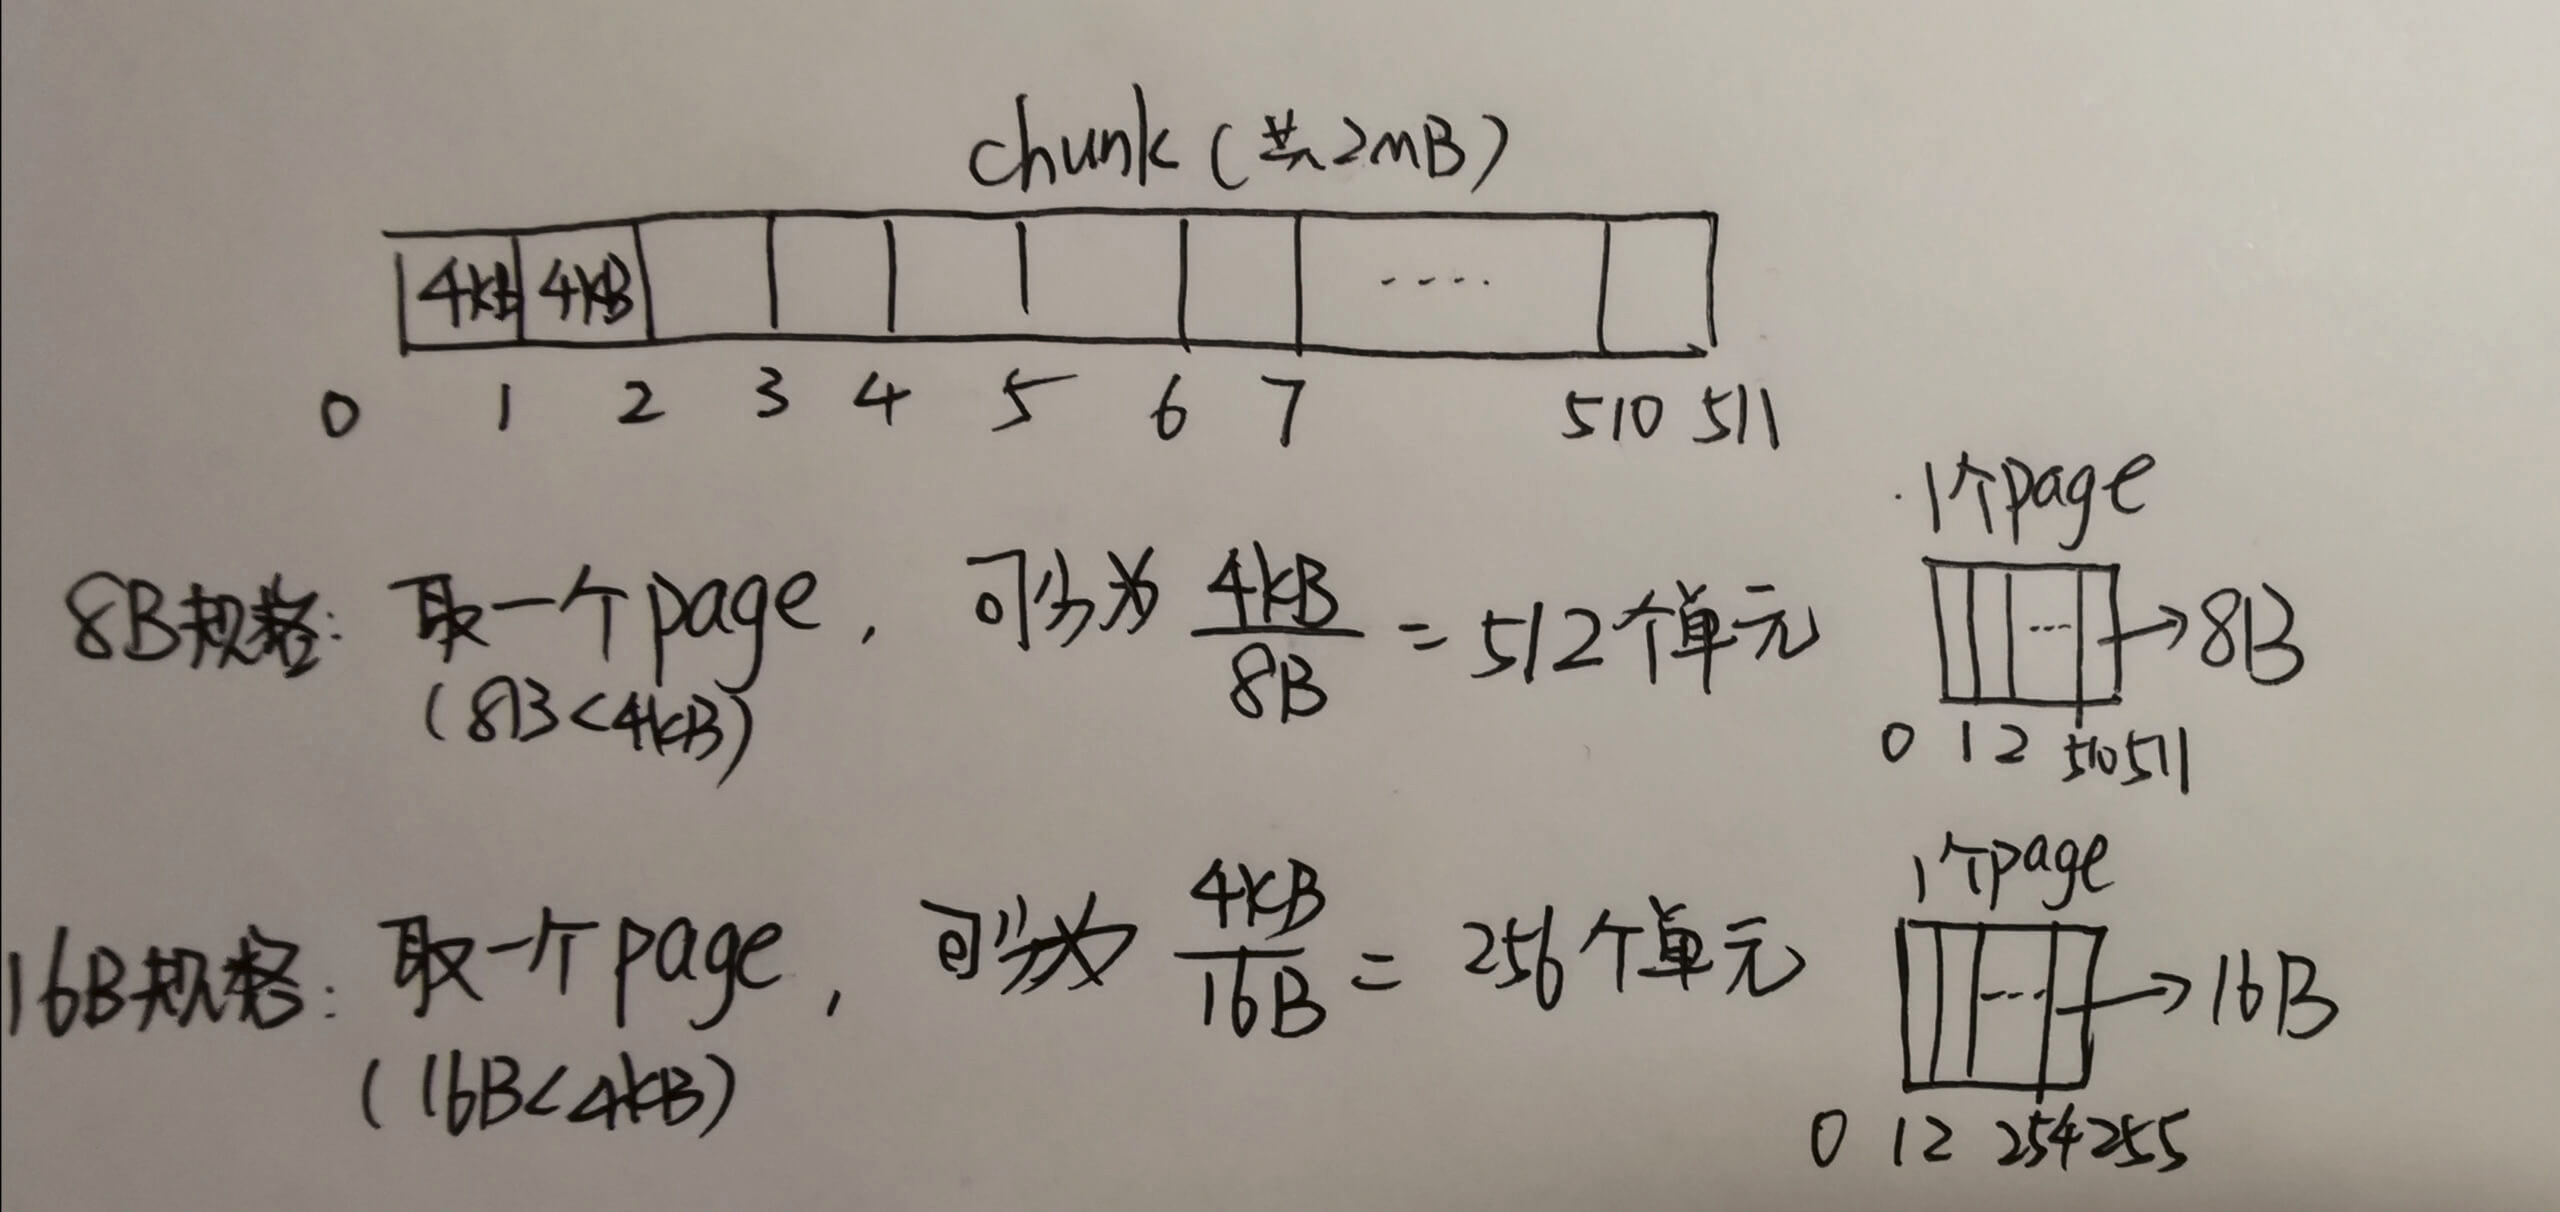 chunk(共2MB)
4kB 4kB ....
0 1 2 3 4 5 6 7 510 511
1个page
8B规格: 取一个page, 可分为 4kB/8B = 512个单元 ... →8B
(8B<4kB)
0 1 2 510 511
1个page
16B规格: 取一个page, 可分为 4kB/16B = 256个单元 ... →16B
(16B<4kB)
0 1 2 254 255